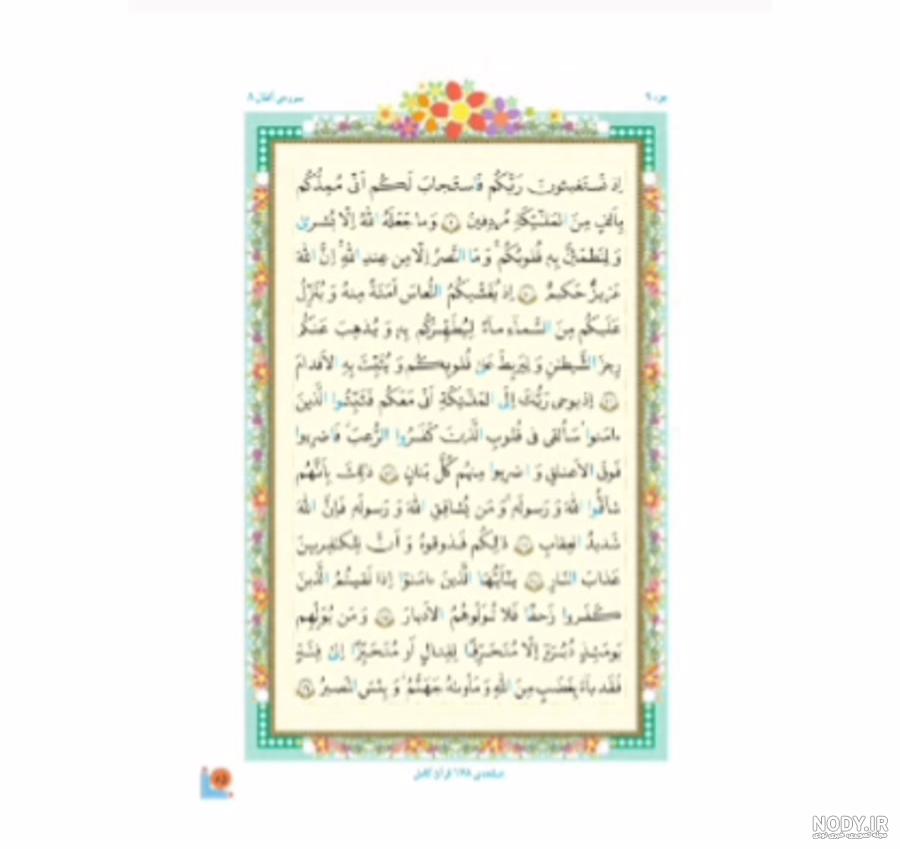 جزء ۹
سوره‌ی انفال ۸
إِذ تَستَغيثونَ رَبَّكُم فَاستَجابَ لَكُم أَنّى مُمِدُّكُم
بِأَلفٍ مِنَ المَلٰئِكَةِ مُردِفينَ ۹ وَ ما جَعَلَهُ اللّٰهُ إِلّا بُشرىٰ
وَ لِتَطمَئِنَّ بِهِ قُلوبُكُم وَ مَا النَّصرُ إِلّا مِن عِندِ اللّٰهِ إِنَّ اللّٰهَ
عَزيزٌ حَكيمٌ ۱۰ إِذ يُغَشّيكُمُ النُّعاسَ أَمَنَةً مِنهُ وَ يُنَزِّلُ
عَلَيكُم مِنَ السَّماءِ ماءً لِيُطَهِّرَكُم بِهِ وَ يُذهِبَ عَنكُم
رِجزَ الشَّيطٰنِ وَ لِيَربِطَ عَلىٰ قُلوبِكُم وَ يُثَبِّتَ بِهِ الأَقدامَ
۱۱ إِذ يوحى رَبُّكَ إِلَى المَلٰئِكَةِ أَنّى مَعَكُم فَثَبِّتُوا الَّذينَ
ءامَنوا سَأُلقى فى قُلوبِ الَّذينَ كَفَرُوا الرُّعبَ فَاضرِبوا
فَوقَ الأَعناقِ وَ اضرِبوا مِنهُم كُلَّ بَنانٍ ۱۲ ذٰلِكَ بِأَنَّهُم
شاقُّوا اللّٰهَ وَ رَسولَهُ وَ مَن يُشاقِقِ اللّٰهَ وَ رَسولَهُ فَإِنَّ اللّٰهَ
شَديدُ العِقابِ ۱۳ ذٰلِكُم فَذوقوهُ وَ أَنَّ لِلكٰفِرينَ
عَذابَ النّارِ ۱۴ يٰأَيُّهَا الَّذينَ ءامَنوا إِذا لَقيتُمُ الَّذينَ
كَفَروا زَحفًا فَلا تُوَلّوهُمُ الأَدبارَ ۱۵ وَ مَن يُوَلِّهِم
يَومَئِذٍ دُبُرَهُ إِلّا مُتَحَرِّفًا لِقِتالٍ أَو مُتَحَيِّزًا إِلىٰ فِئَةٍ
فَقَد باءَ بِغَضَبٍ مِنَ اللّٰهِ وَ مَأوىٰهُ جَهَنَّمُ وَ بِئسَ المَصيرُ ۱۶
صفحه‌ی ۱۷۸ قرآن کامل
NODY.IR